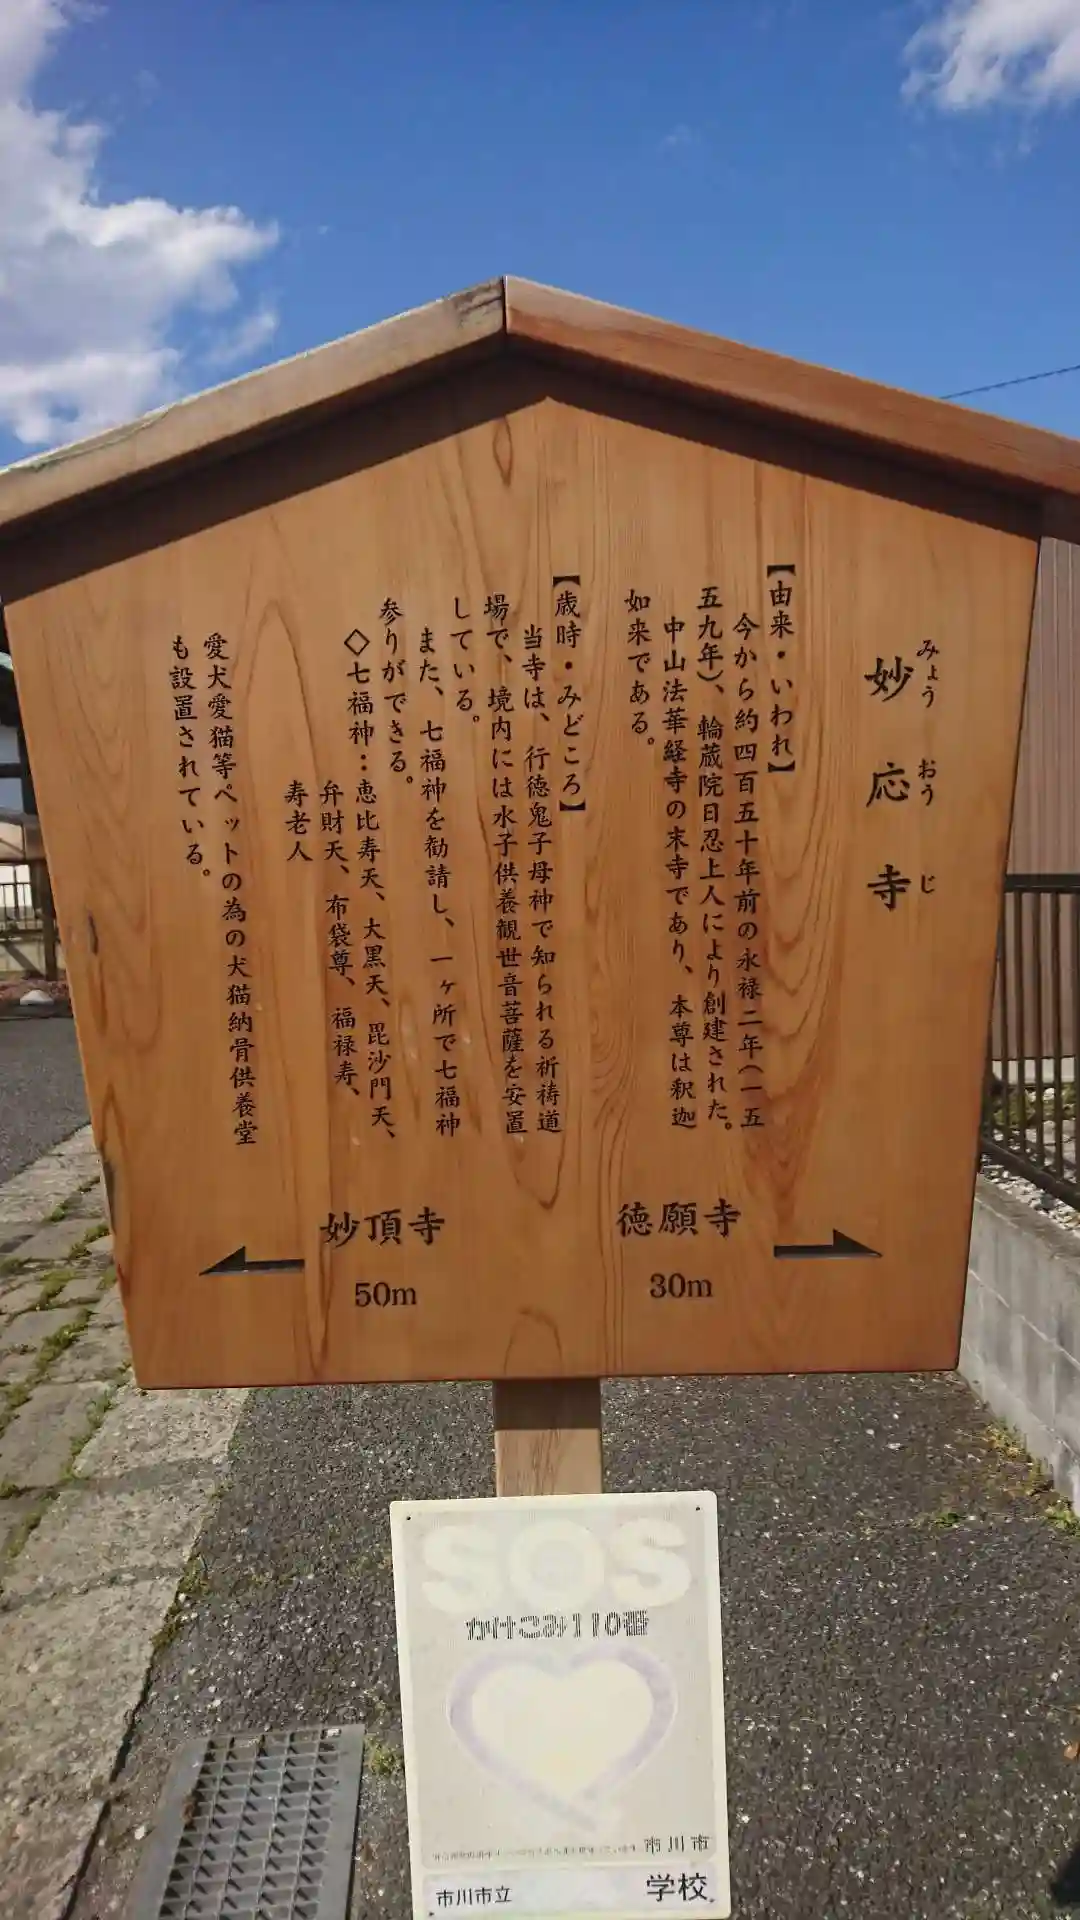 妙応寺
みょうおうじ
【由来・いわれ】
今から約四百五十年前の永禄二年(一五
五九年)、輪蔵院日忍上人により創建された。
中山法華経寺の末寺であり、本尊は釈迦
如来である。
【歳時・みどころ】
当寺は、行徳鬼子母神で知られる祈祷道
場で、境内には水子供養観世音菩薩を安置
している。
また、七福神を勧請し、一ヶ所で七福神
参りができる。
◇七福神:恵比寿天、大黒天、毘沙門天、
弁財天、布袋尊、福禄寿、
寿老人
愛犬愛猫等ペットの為の犬猫納骨供養堂
も設置されている。
徳願寺
30m
妙頂寺
50m
SOS
かけこみ110番
市川市
市川市立
学校